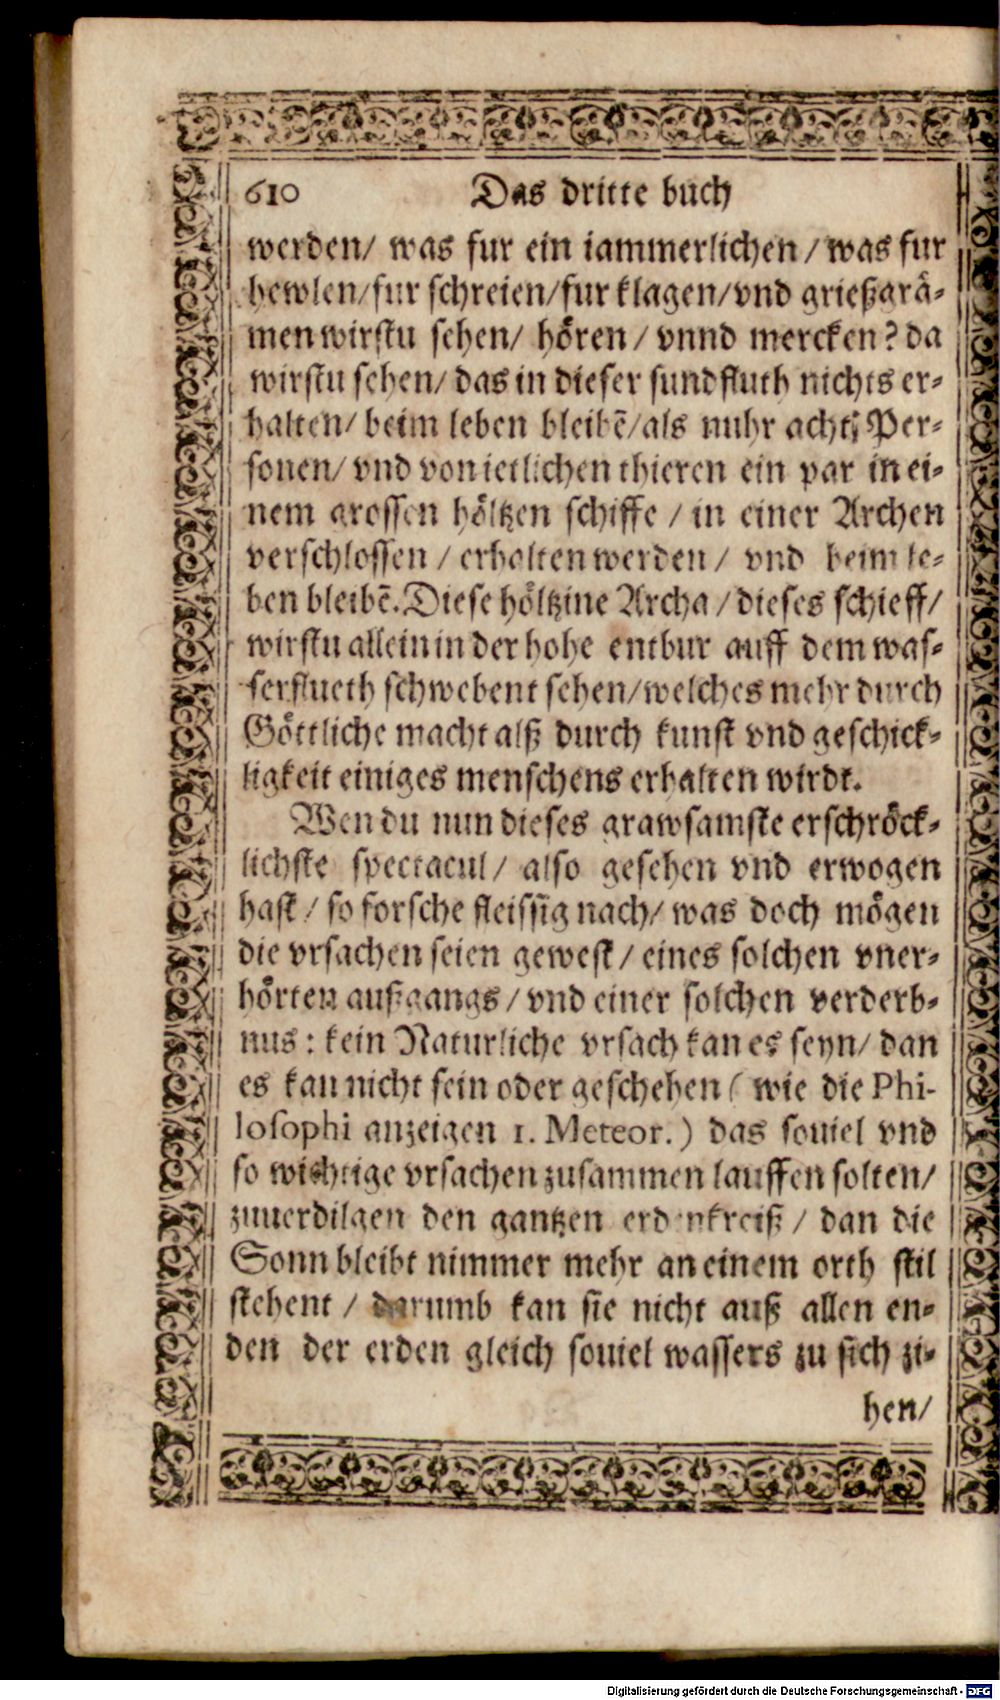 610 Das dritte buch
werden/ was fur ein iammerlichen / was fur
hewlen/fur schreien/fur klagen/vnd grießgrä-
men wirstu sehen/ hören / vnnd mercken? da
wirstu sehen/ das in dieser sundfluth nichts er-
halten/ beim leben bleibē/als nuhr acht Per-
sonen/ vnd von ietlichen thieren ein par in ei-
nem grossen höltzen schiffe / in einer Archen
verschlossen / erhalten werden / vnd beim le-
ben bleibē. Diese höltzine Archa / dieses schieff/
wirstu allein in der hohe entbur auff dem was-
serflueth schwebent sehen/welches mehr durch
Göttliche macht alß durch kunst vnd geschick-
ligkeit einiges menschens erhalten wirdt.
Wen du nun dieses grawsamste erschröck-
lichste spectacul/ also gesehen vnd erwogen
hast / so forsche fleissig nach/ was doch mögen
die vrsachen seien gewest / eines solchen vner-
hörten außgangs / vnd einer solchen verderb-
nus : kein Naturliche vrsach kan es seyn/ dan
es kan nicht sein oder geschehen ( wie die Phi-
losophi anzeigen 1. Meteor. ) das souiel vnd
so wichtige vrsachen zusammen lauffen solten/
zuuerdilgen den gantzen erdenkreiß / dan die
Sonn bleibt nimmer mehr an einem orth stil
stehent / darumb kan sie nicht auß allen en-
den der erden gleich souiel wassers zu sich zi-
hen/
Digitalisierung gefördert durch die Deutsche Forschungsgemeinschaft - DFG